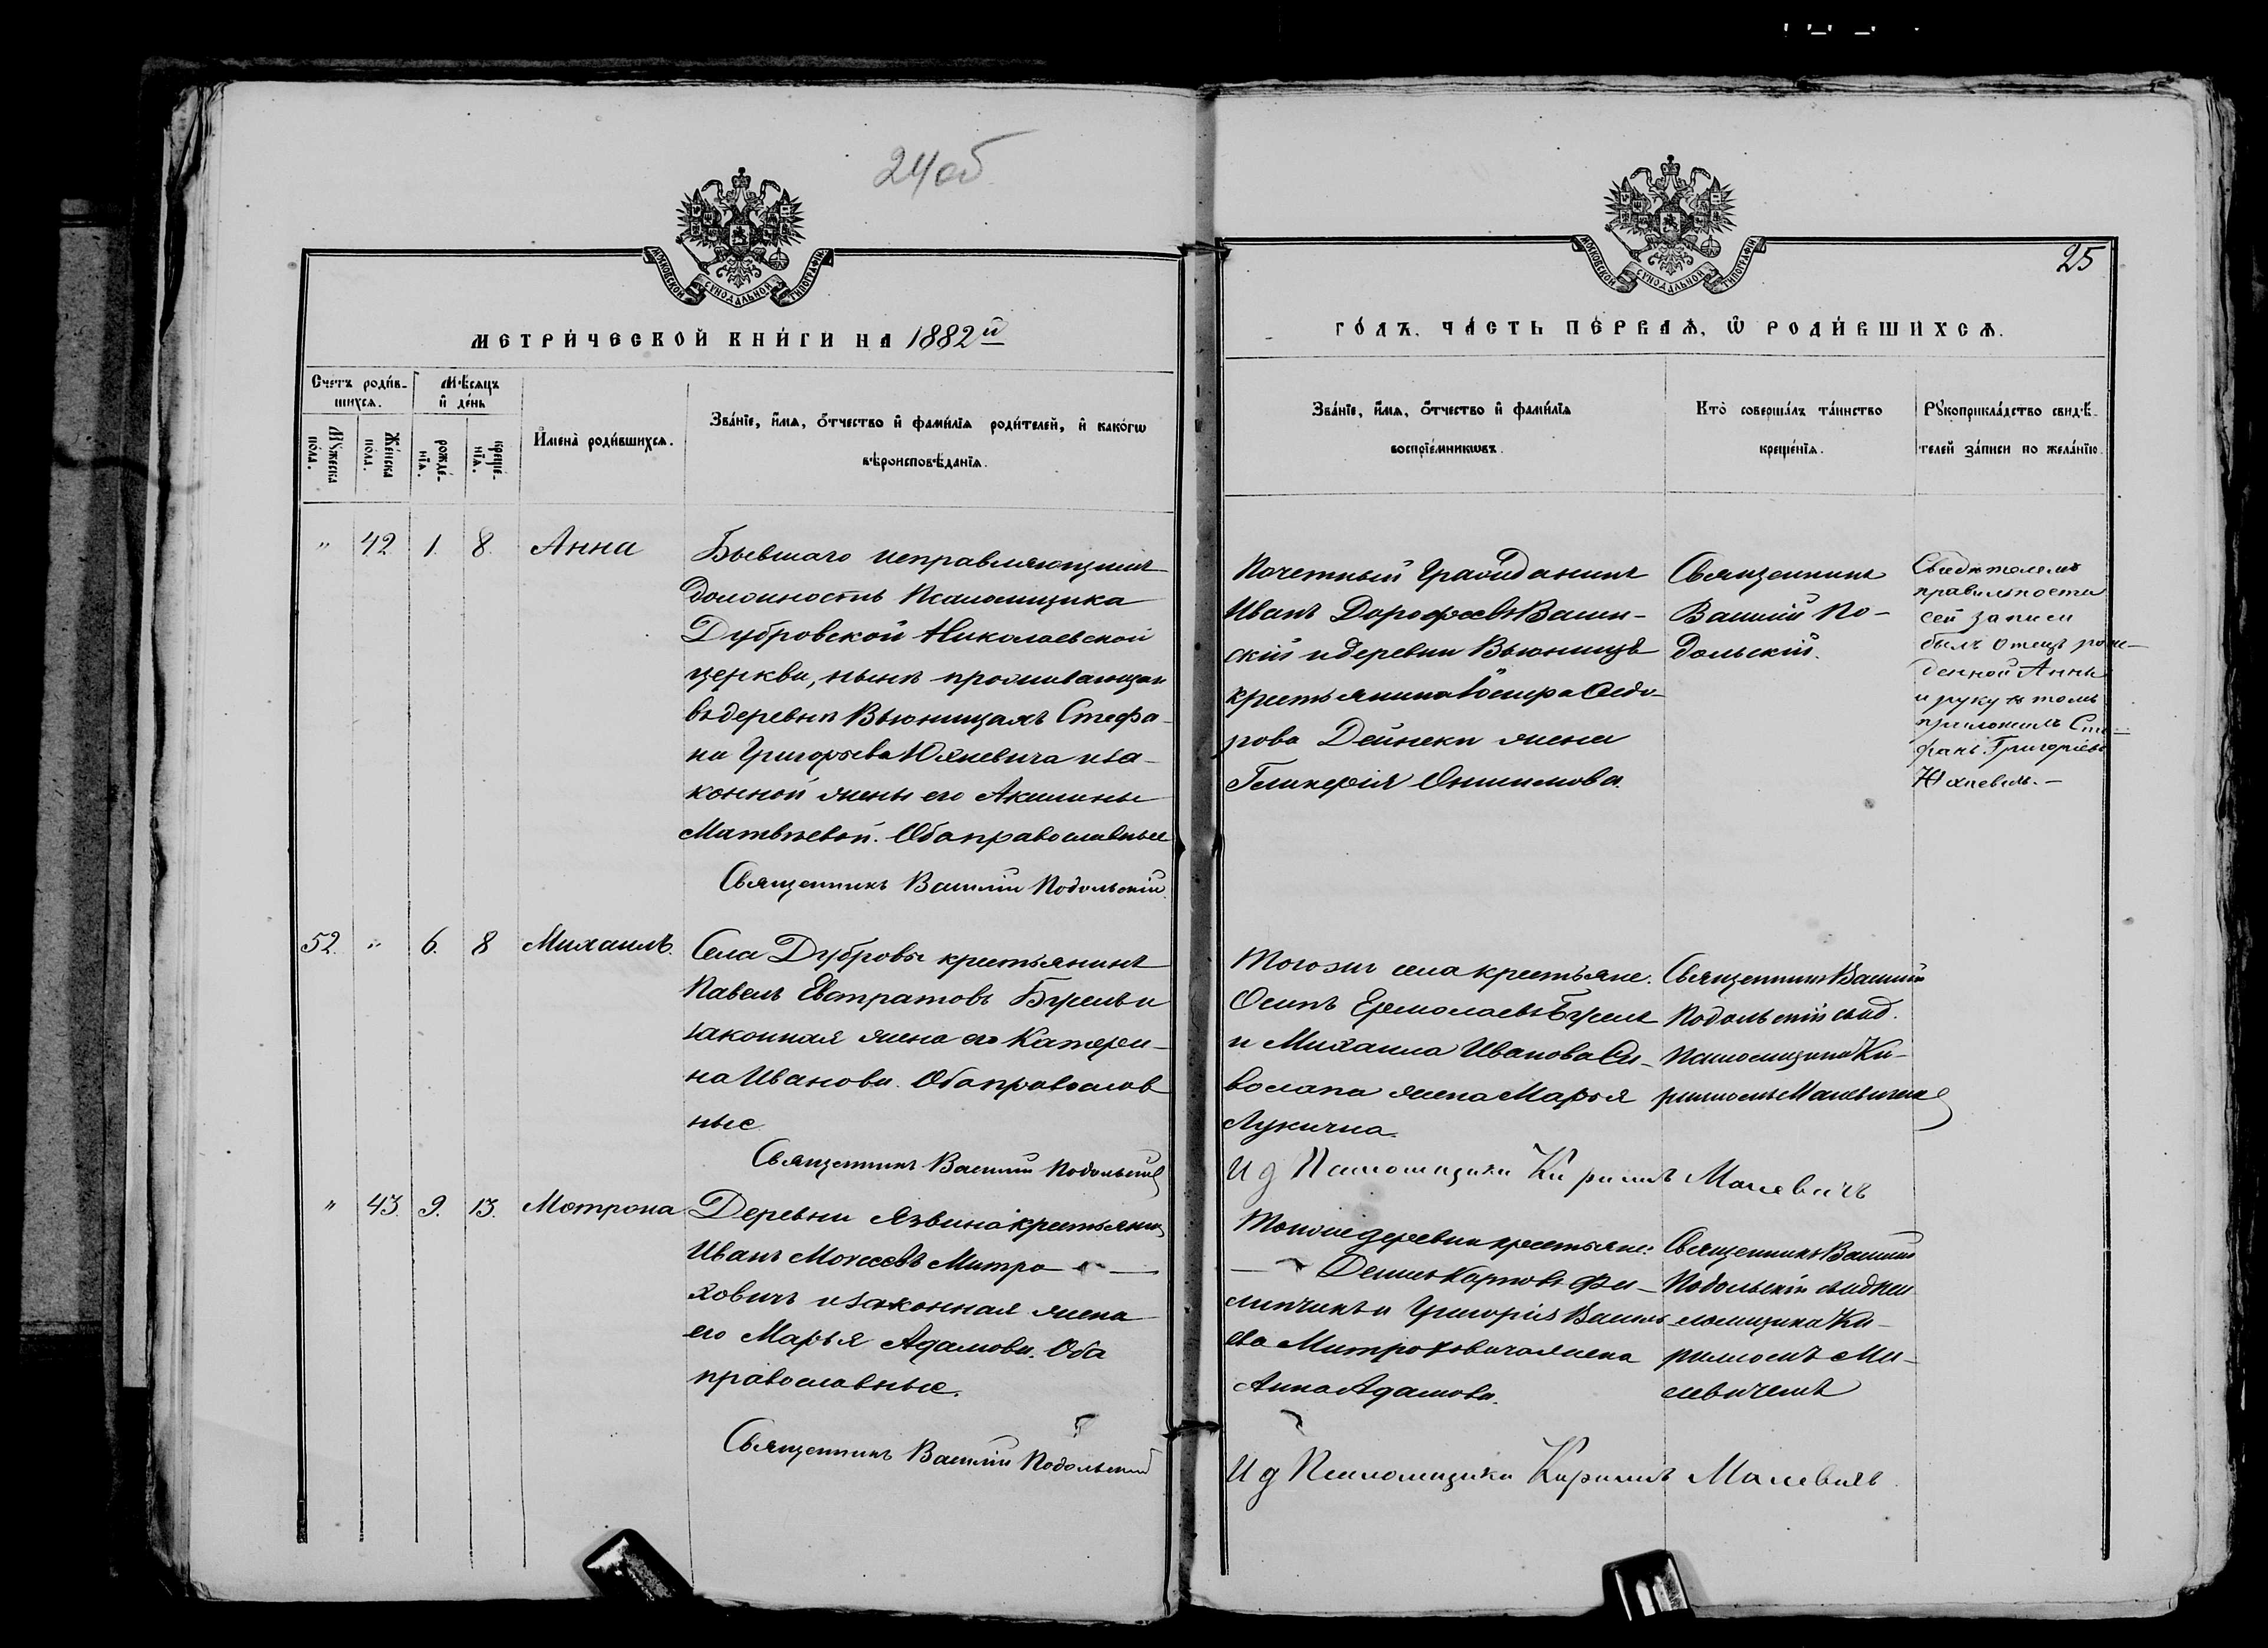 24об
МОСКОВСКОЙ СѴНОДАЛЬНОЙ ТИПОГРАФІИ
МЕТРИ́ЧЕСКОЙ КНИ́ГИ НА 1882й
Счетъ роди́в-
шихсѧ.
Мѣ́сѧцъ
и҆ де́нь
Мꙋ́жеска
по́ла.
Же́нска
по́ла.
рожде́-
нїѧ.
креще́-
нїѧ.
И҆мена̀ роди́вшихсѧ.
Зва́нїе, и҆́мѧ, ѻ҆́тчество и҆ фами́лїѧ роди́телей, и҆ како́гѡ
вѣроисповѣ́данїѧ.
" 42. 1. 8. Анна
Бывшаго исправляющимъ
должность Псаломщика
Дубровской Николаевской
церкви, нынѣ проживающаго
въ деревнѣ Вьюнищахъ Стефа-
на Григорьева Юхневича и за-
конной жены его Акилины
Матвѣевой. Оба православные
Священникъ Василій Подольскій.
52. " 6. 8 Михаилъ.
Села Дубровы крестьянинъ
Павелъ Евстратовъ Бусель и
законная жена его Катери-
на Иванова. Оба православ
ные
Священникъ Василій Подольскій
" 43. 9. 13. Мотрона
Деревни Язвина крестьянинъ
Иванъ Моисеевъ Митро-
ховичъ и законная жена
его Марья Адамова. Оба
православные.
Священникъ Василій Подольскій
25
МОСКОВСКОЙ СѴНОДАЛЬНОЙ ТИПОГРАФІИ
ГО́ДЪ. ЧА́СТЬ ПЕ́РВАѦ, Ѽ РОДИ́ВШИХСѦ.
Зва́нїе, и҆́мѧ, ѻ҆́тчество и҆ фами́лїѧ
воспрїе́мникѡвъ.
Кто̀ соверша́лъ та́инство
креще́нїѧ.
Рꙋкоприкла́дство свидѣ́-
телей за́писи по жела́нїю.
Почетный Гражданинъ
Иванъ Дорофеевъ
скій и деревни Вьюнищъ
крестьянина Іосифа Ѳедо-
рова Дейнеки жена
Гликерія Онисимова.
Священникъ
Василій По-
дольскій.
Свидѣтелемъ
правильности
сей записи
былъ отецъ рож-
денной Анны
и руку въ томъ
приложилъ Сте-
фанъ Григоріевъ
Юхневичъ.-
Того же села крестьяне:
Осипъ Ермолаевъ Бусель
и Михаила Иванова Си-
волапа жена Марья
Лукична.
Священникъ Василій
Подольскій съ и.д.
Псаломщика Ки-
рилломъ Малевичемъ
И д Псаломщика Кириллъ Малевичъ
Той же деревни крестьяне:
Денисъ Карповъ Фи-
липчикъ и Григорія Василь
ева Митроховича жена
Анна Адамова.
Священникъ Василій
Подольскій съ и.д. Пса
ломщика Ки-
рилломъ Ма-
левичемъ
И д Псаломщика Кириллъ Малевичъ.